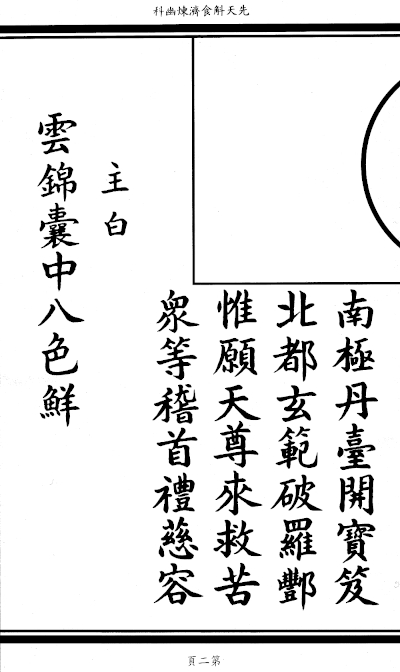 先天斛食濟煉幽科
南極丹臺開寶笈
北都玄範破羅酆
惟願天尊來救苦
眾等稽首禮慈容
主白
雲錦囊中八色鮮
第二頁